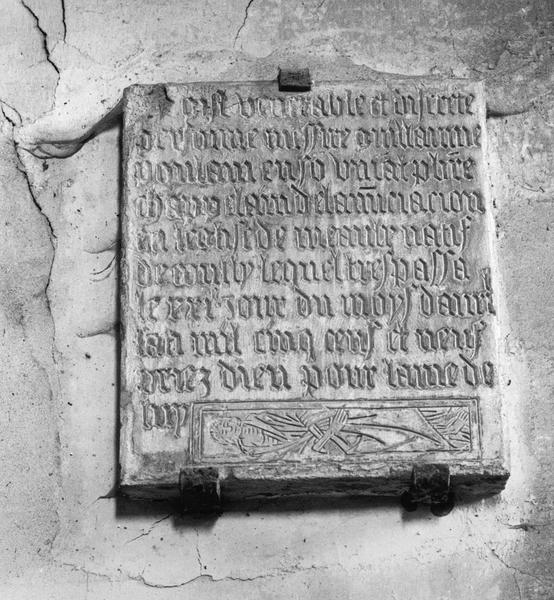 cy gist venerable et discrete
personne missire guillaume
poulain en so vivāt pbre
chappelain de lanūciacion
en leglise de meaulte natif
de
lequel trespassa
le xxie jour du moys davril
lan mil cinq cens et neuf
priez dieu pour lame de
luy